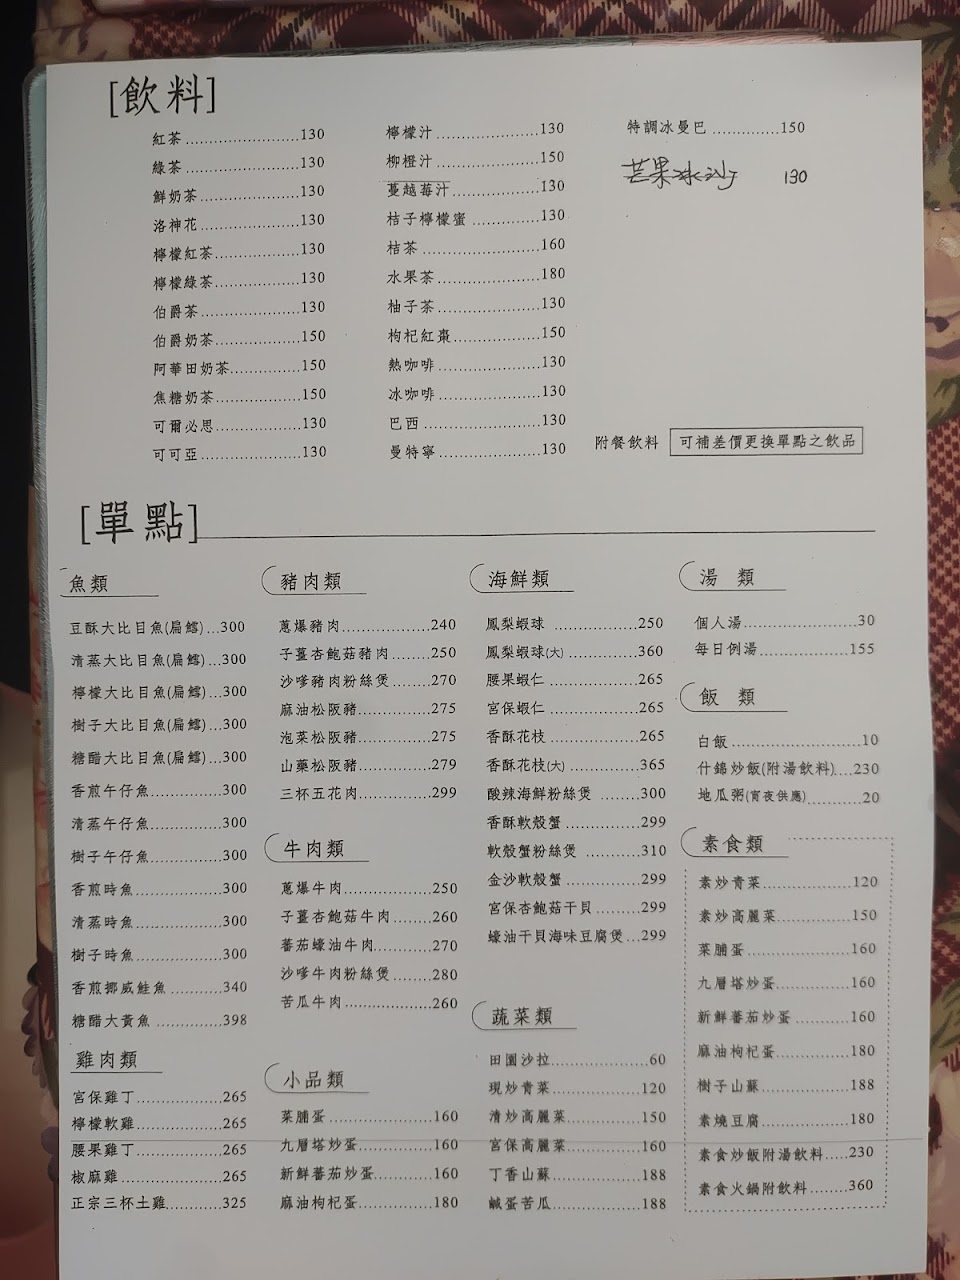 [飲料]
紅茶 130
綠茶 130
鮮奶茶 130
洛神花 130
檸檬紅茶 130
檸檬綠茶 130
伯爵茶 130
伯爵奶茶 150
阿華田奶茶 150
焦糖奶茶 150
可爾必思 130
可可亞 130
檸檬汁 130
柳橙汁 150
蔓越莓汁 130
桔子檸檬蜜 130
桔茶 160
水果茶 180
柚子茶 130
枸杞紅棗 150
熱咖啡 130
冰咖啡 130
巴西 130
曼特寧 130
特調冰曼巴 150
芒果冰沙 130
附餐飲料 可補差價更換單點之飲品
[單點]
魚類
豆酥大比目魚(扁鱈) 300
清蒸大比目魚(扁鱈) 300
檸檬大比目魚(扁鱈) 300
樹子大比目魚(扁鱈) 300
糖醋大比目魚(扁鱈) 300
香煎午仔魚 300
清蒸午仔魚 300
樹子午仔魚 300
香煎時魚 300
清蒸時魚 300
樹子時魚 300
香煎挪威鮭魚 340
糖醋大黃魚 398
雞肉類
宮保雞丁 265
檸檬軟雞 265
腰果雞丁 265
椒麻雞 265
正宗三杯土雞 325
豬肉類
蔥爆豬肉 240
子薑杏鮑菇豬肉 250
沙嗲豬肉粉絲煲 270
麻油松阪豬 275
泡菜松阪豬 275
山藥松阪豬 279
三杯五花肉 299
牛肉類
蔥爆牛肉 250
子薑杏鮑菇牛肉 260
蕃茄蠔油牛肉 270
沙嗲牛肉粉絲煲 280
苦瓜牛肉 260
小品類
菜脯蛋 160
九層塔炒蛋 160
新鮮蕃茄炒蛋 160
麻油枸杞蛋 180
海鮮類
鳳梨蝦球 250
鳳梨蝦球(大) 360
腰果蝦仁 265
宮保蝦仁 265
香酥花枝 265
香酥花枝(大) 365
酸辣海鮮粉絲煲 300
香酥軟殼蟹 299
軟殼蟹粉絲煲 310
金沙軟殼蟹 299
宮保杏鮑菇干貝 299
蠔油干貝海味豆腐煲 299
蔬菜類
田園沙拉 60
現炒青菜 120
清炒高麗菜 150
宮保高麗菜 160
丁香山蘇 188
鹹蛋苦瓜 188
湯類
個人湯 30
每日例湯 155
飯類
白飯 10
什錦炒飯(附湯飲料) 230
地瓜粥(宵夜供應) 20
素食類
素炒青菜 120
素炒高麗菜 150
菜脯蛋 160
九層塔炒蛋 160
新鮮蕃茄炒蛋 160
麻油枸杞蛋 180
樹子山蘇 188
素燒豆腐 180
素食炒飯附湯飲料 230
素食火鍋附飲料 360